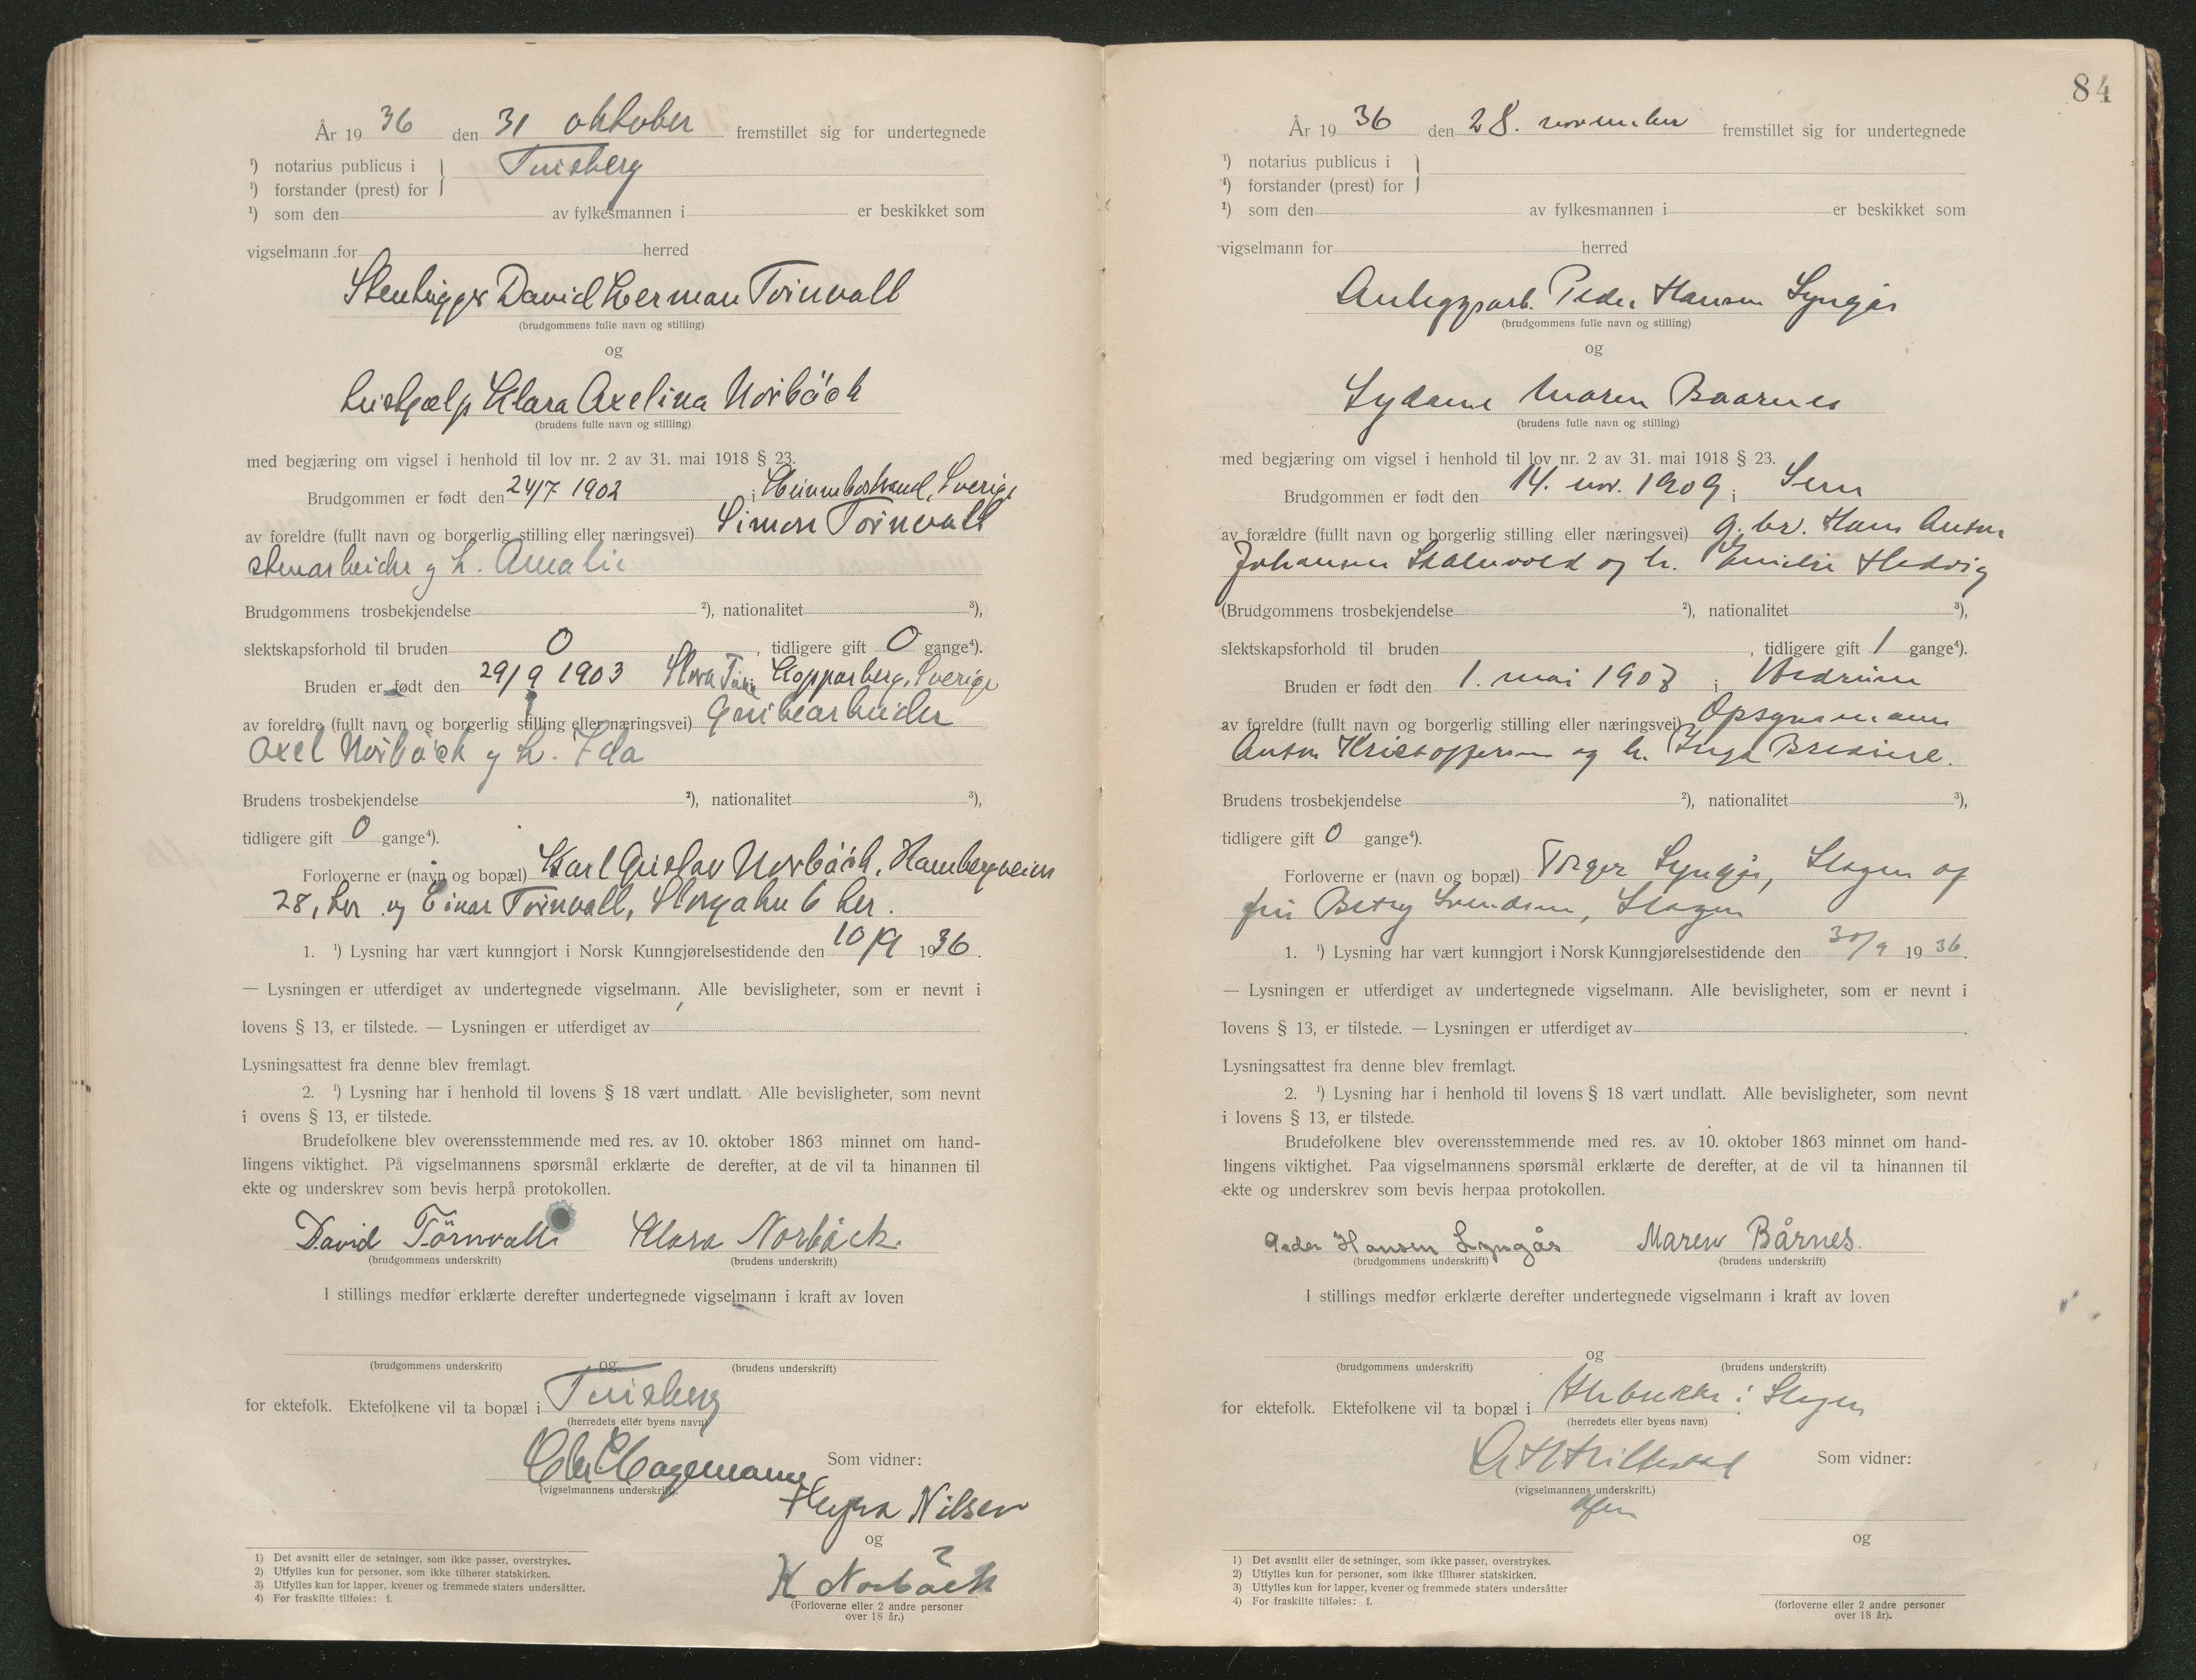 År 19 36 den 31 oktober fremstillet sig for undertegnede
¹) notarius publicus i } Tønsberg
¹) forstander (prest) for
¹) som den av fylkesmannen i er beskikket som
vigselmann for herred
Stenhugger David Herman Törnvall
(brudgommens fulle navn og stilling)
og
hushjælp Klara Axelina Norbäck
(brudens fulle navn og stilling)
med begjæring om vigsel i henhold til lov nr. 2 av 31. mai 1918 § 23.
Brudgommen er født den 24/7 1902 i Hunnebostrand, Sverige
av foreldre (fullt navn og borgerlig stilling eller næringsvei) Simon Törnvall
stenarbeider og h. Amalie
Brudgommens trosbekjendelse ²), nationalitet ³),
slektskapsforhold til bruden 0 , tidligere gift 0 gange⁴).
Bruden er født den 29/9 1903 Stora Tuna i Kopparberg, Sverige
av foreldre (fullt navn og borgerlig stilling eller næringsvei) Grubearbeider
Axel Norbäck og h. Ida
Brudens trosbekjendelse ²), nationalitet ³),
tidligere gift 0 gange⁴).
Forloverne er (navn og bopæl) Karl Gustav Norbäck, Hambergveien
28, her og Einar Törnvall, Storgaten 6 her.
1. ¹) Lysning har vært kunngjort i Norsk Kunngjørelsestidende den 10/9 1936.
— Lysningen er utferdiget av undertegnede vigselmann. Alle bevisligheter, som er nevnt i
lovens § 13, er tilstede. — Lysningen er utferdiget av
Lysningsattest fra denne blev fremlagt.
2. ¹) Lysning har i henhold til lovens § 18 vært undlatt. Alle bevisligheter, som nevnt
i ovens § 13, er tilstede.
Brudefolkene blev overensstemmende med res. av 10. oktober 1863 minnet om hand-
lingens viktighet. På vigselmannens spørsmål erklærte de derefter, at de vil ta hinannen til
ekte og underskrev som bevis herpå protokollen.
David Törnvall Klara Norbäck.
(brudgommens underskrift) (brudens underskrift)
I stillings medfør erklærte derefter undertegnede vigselmann i kraft av loven
og
(brudgommens underskrift) (brudens underskrift)
for ektefolk. Ektefolkene vil ta bopæl i Tønsberg
(herredets eller byens navn)
Chr Hagemann Som vidner:
(vigselmannens underskrift).
Nilsen
og
K Norbäck
(Forloverne eller 2 andre personer
over 18 år.)
1) Det avsnitt eller de setninger, som ikke passer, overstrykes.
2) Utfylles kun for personer, som ikke tilhører statskirken.
3) Utfylles kun for lapper, kvener og fremmede staters undersåtter.
4) For fraskilte tilføies: f.
84
År 19 36 den 28. november fremstillet sig for undertegnede
¹) notarius publicus i }
¹) forstander (prest) for
¹) som den av fylkesmannen i er beskikket som
vigselmann for herred
Anleggsarb. Peder Hansen Lyngås
(brudgommens fulle navn og stilling)
og
Maren Baarnes
(brudens fulle navn og stilling)
med begjæring om vigsel i henhold til lov nr. 2 av 31. mai 1918 § 23.
Brudgommen er født den 14. nov. 1909 i Sem
av forældre (fullt navn og borgerlig stilling eller næringsvei) g.br. Hans Anton
Johansen og h. Emilie Hedvig
(Brudgommens trosbekjendelse ²), nationalitet ³),
slektskapsforhold til bruden , tidligere gift 1 gange⁴).
Bruden er født den 1. mai 1908 i Hedrum
av foreldre (fullt navn og borgerlig stilling eller næringsvei) Opsynsmann
Anton Kristoffersen og h. Inga
Brudens trosbekjendelse ²), nationalitet ³),
tidligere gift 0 gange⁴).
Forloverne er (navn og bopæl) Torger Lyngås, Slagen og
fru Betsy Svendsen, Slagen
1. ¹) Lysning har vært kunngjort i Norsk Kunngjørelsestidende den 30/9 19 36.
— Lysningen er utferdiget av undertegnede vigselmann. Alle bevisligheter, som er nevnt i
lovens § 13, er tilstede. — Lysningen er utferdiget av .
Lysningsattest fra denne blev fremlagt.
2. ¹) Lysning har i henhold til lovens § 18 vært undlatt. Alle bevisligheter, som nevnt
i lovens § 13, er tilstede.
Brudefolkene blev overensstemmende med res. av 10. oktober 1863 minnet om hand-
lingens viktighet. Paa vigselmannens spørsmål erklærte de derefter, at de vil ta hinannen til
ekte og underskrev som bevis herpaa protokollen.
Peder Hansen Lyngås Maren Bårnes.
(brudgommens underskrift) (brudens underskrift)
I stillings medfør erklærte derefter undertegnede vigselmann i kraft av loven
og
(brudgommens underskrift) (brudens underskrift)
for ektefolk. Ektefolkene vil ta bopæl i i Slagen
(herredets eller byens navn)
Som vidner:
(vigselmannens underskrift.)
og
1) Det avsnitt eller de setninger, som ikke passer, overstrykes.
2) Utfylles kun for personer, som ikke tilhører statskirken.
3) Utfylles kun for lapper, kvener og fremmede staters undersåtter
4) For fraskilte tilføies: f.
(forloverne eller 2 andre personer
over 18 år).